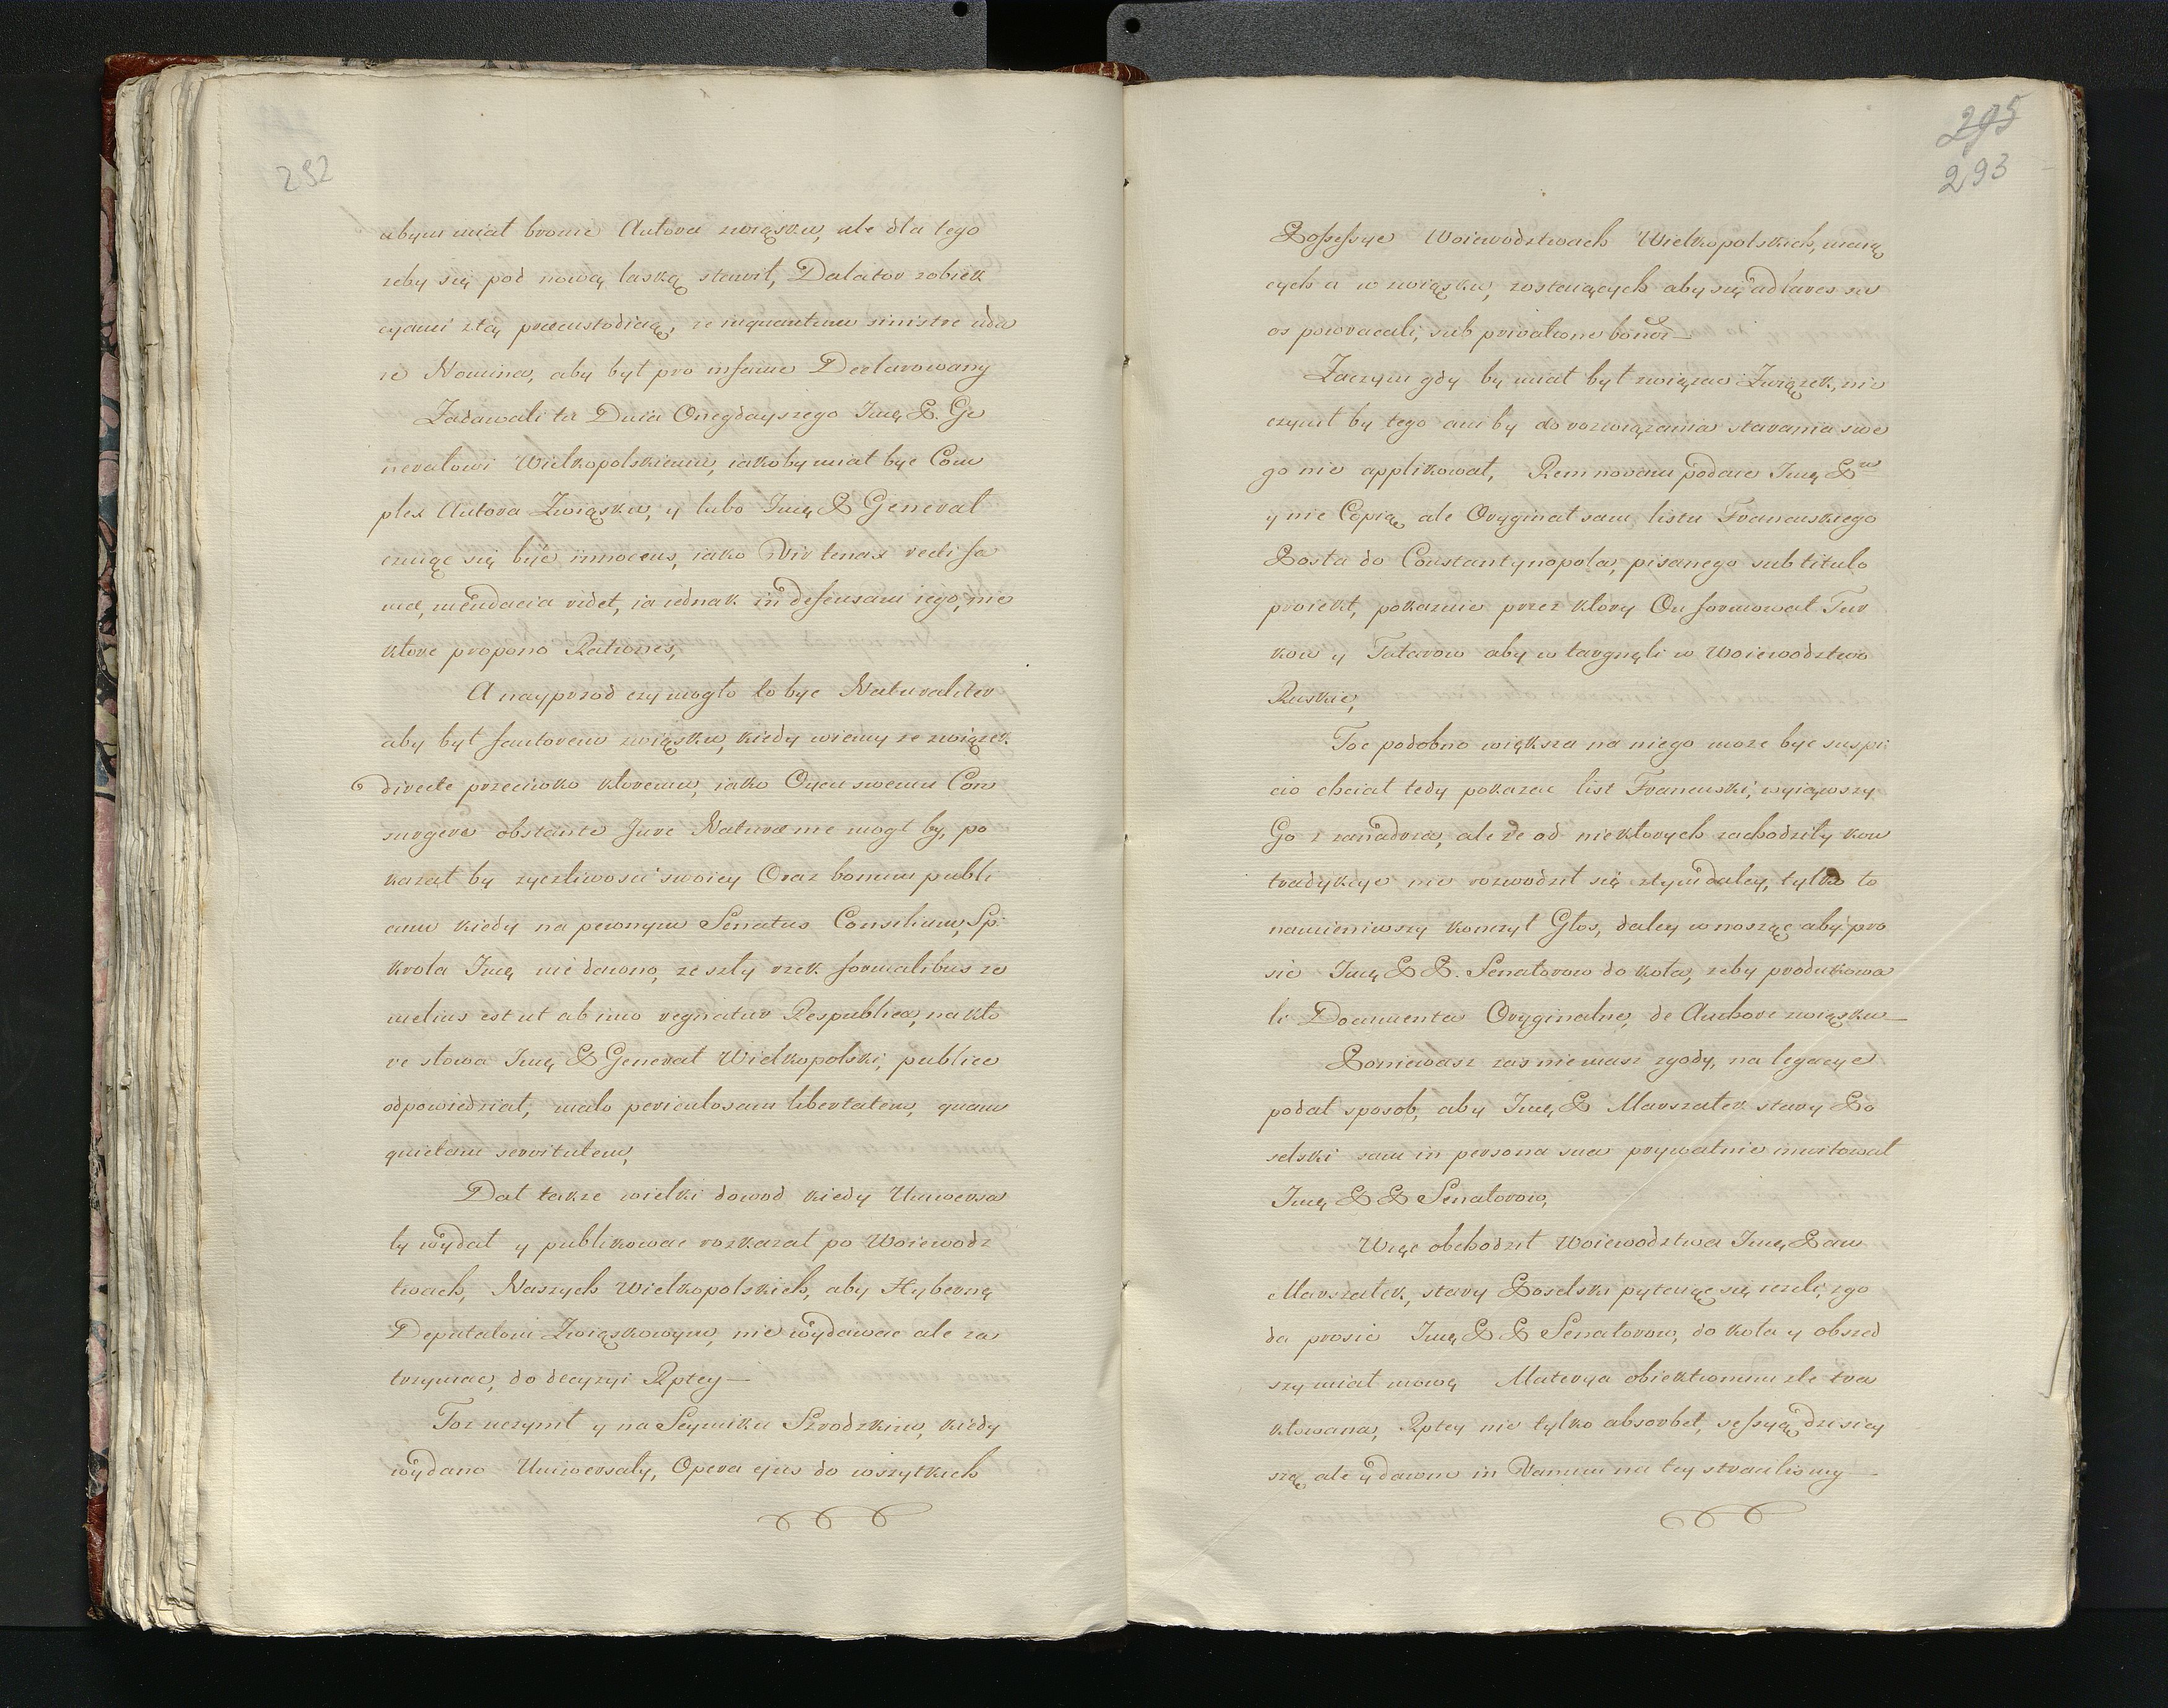 292
abym miał bronic Autora związku, ale dla tego
zeby się pod nową laską stawił, Delator zobiek
cyami ztą praecustodicią, ze inquantum sinistre uda
ie Nomina, aby był pro infame Declarowany
Zadawali tu Dnia Onegdayszego Jmę P. Ge
nerałowi Wielkopolskiemu, iakoby miał byc Com
plex Autora Związku, y lubo Jmę P General
czuiąc się być innocens, iako Vir tenax recti fa
mæ, mendacia ridet, ia iednak in defensam iego, nie
ktore propono Rationes,
A nayprzod czy mogło to byc Naturaliter
aby był fautorem związku, kiedy wiemy ze związek
directe przeciwko ktoremu, iako Oycu swemu Con
surgere obstante Jure Naturæ nie mogł by, po
kazał by zyczliwosci swoiey Oraz bonum publi
cum kiedy na pewnym Senatus Consilium, Sp.
krola Jmę nie dawno, zeszły rzek formalibus ze
melius est ut ab imo regnatur Respublica, na kto
re słowa Jmę P Generał Wielkopolski, publice
odpowiedział, malo periculosam libertatem, quam
quietam servitutem,
Dał takze wielki dowod kiedy Uniwersa
ły wydał y publikowac rozkazał po Woiewodz
twach, Naszych Wielkopolskich, aby Hyberną
Deputatom Związkowym, nie wydawac ale za
trzymac, do decyzyi Rptey—
Toz uczynił y na Seymiku Szrodzkim, kiedy
wydano Uniwersały, Opera ejus do wszytkich
295
293
Possessye Woiewodztwach Wielkopolskich, maią
cych a w związku, zostaiących aby się ad lares su
os powracali, sub privatione bonor—
Zaczym gdy by miał był związac Związek, nie
czynił by tego ani by do rozwiązania starania swe
go nie applikował, Rem novam podaie Jmę Pn
y nie Copią, ale Oryginał sam listu Francuskiego
Posła do Constantynopola, pisanego sub titulo
proiekt, pokazuie przez ktory On formował Tur
kow y Tatarow aby w targnęli w Woiewodztwo
Ruskie,
Toc podobno większa na niego moze byc suspi
cio chciał tedy pokazac list Francuski, wyiąwszy
Go z zanadrza, ale ze od niektorych zachodziły kon
tradykcye nie rozwodził się ztym daley, tylko to
namieniwszy konczył Głos, daley wnosząc aby pro
sic Jmę P P. Senatorow do koła, zeby produkowa
li Documenta Oryginalne, de Authore związku—
Poniewasz zas niemasz zgody, na legacye
podał sposob, aby Jmę P Marszałek stary Po
selski sam in persona sua prywatnie inwitował
Jmę P P Senatorow,
Więc obchodził Woiewodztwa Jmę Pan
Marszałek, stary Poselski pytaiąc się iezeli zgo
da prosic Jmę P P Senatorow, do koła y obszed
szy miał mowę Materya obiektionum zle tra
ktowana, Rptey nie tylko absorbet, sessyą dzisiey
szą, ale y dawne in Vanum na tey straciliśmy—